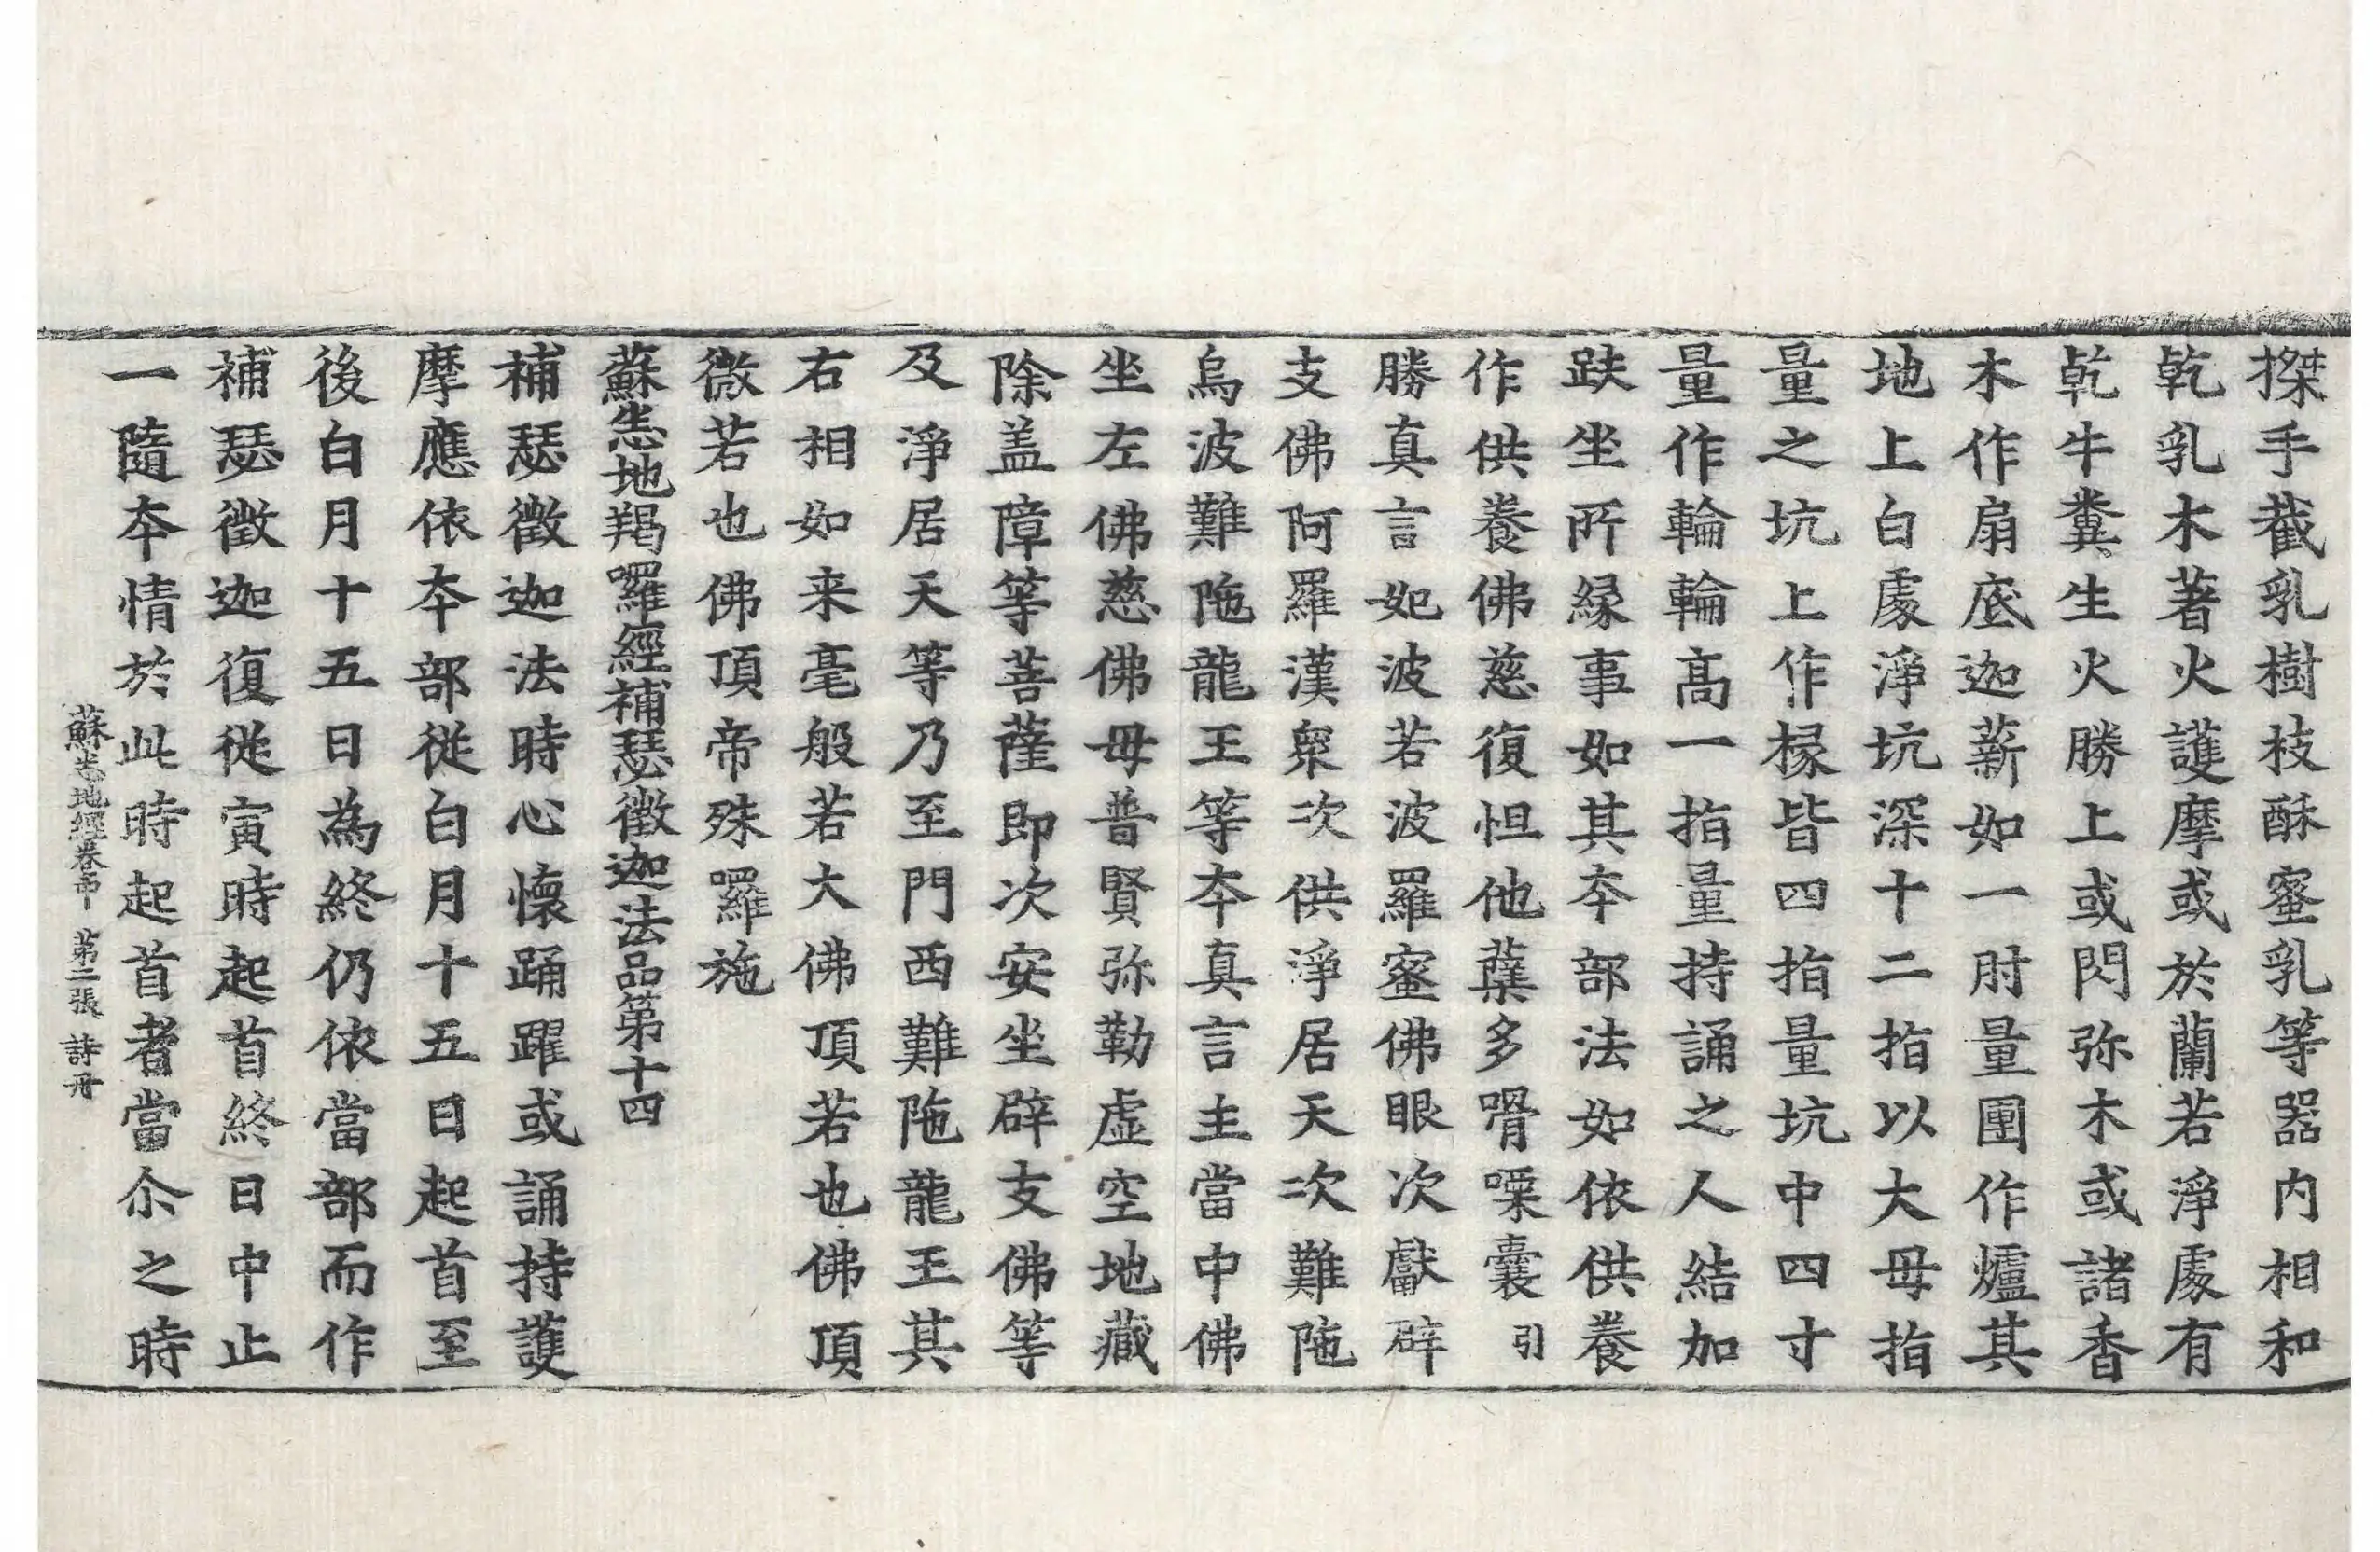 搩手截乳樹枝酥蜜乳等器内相和
乾乳木著火護摩或於蘭若淨處有
乹牛糞生火勝上或閃弥木或諸香
木作扇底迦薪如一肘量團作爐其
地上白處淨坑深十二指以大母指
量之坑上作椽皆四指量坑中四寸
量作輪輪髙一指量持誦之人結加
趺坐所縁事如其夲部法如依供養
作供養佛慈復怛他蘖多嚩㗚囊引
勝真言如波若波羅蜜佛眼次獻辟
支佛阿羅漢衆次供淨居天次難陁
烏波難陁龍王等夲真言主當中佛
坐左佛慈佛母普賢弥勒虛空地藏
除盖障等菩薩即次安坐辟支佛等
及淨居天等乃至門西難陁龍王其
右相如来毫般若大佛頂若也佛頂
微若也佛頂帝殊羅施
蘇悉地羯羅經補瑟徵迦法品第十四
補瑟徵迦法時心懷踊躍或誦持護
摩應依夲部從白月十五日起首至
後白月十五日為終仍依當部而作
補瑟徵迦復從寅時起首終日中止
一隨夲情於此時起首者當尒之時
蘇悉地經卷中 第二張 詩冊